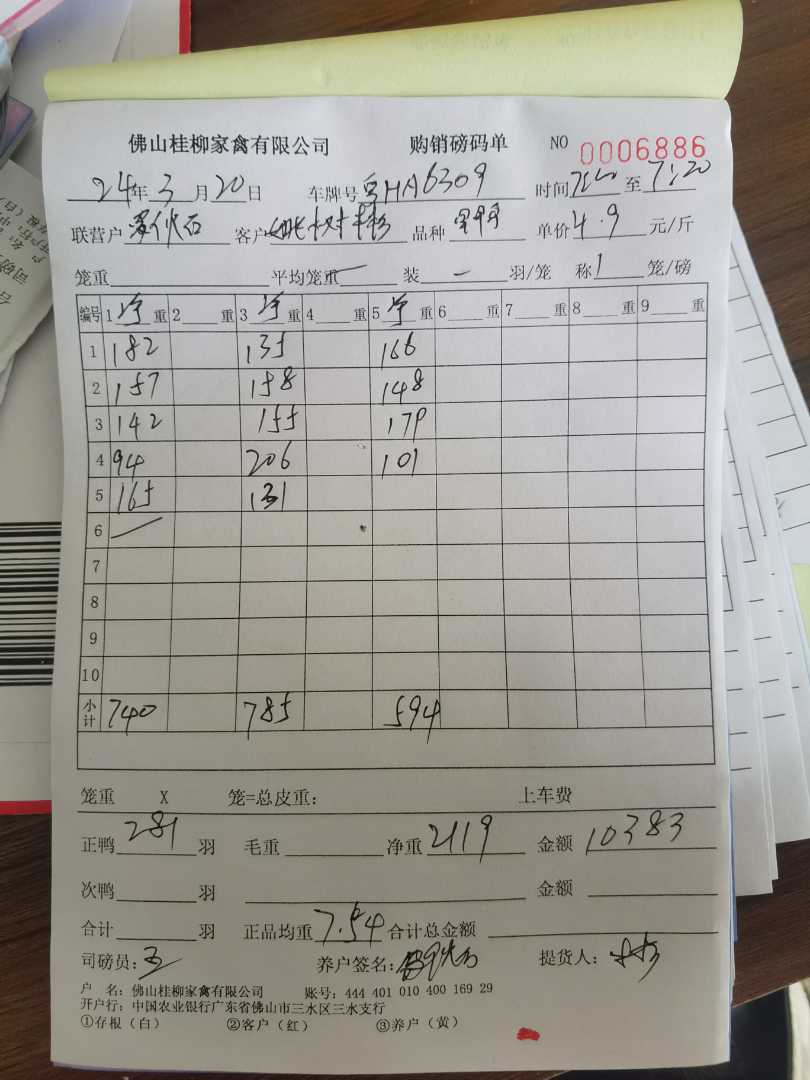 佛山桂柳家禽有限公司 购销磅码单 NO 0006886
24年3月20日 车牌号粤HA6309 时间 至7:20
联营户 客户姚树 品种 单价4.9元/斤
笼重 平均笼重— 装—羽/笼 称1笼/磅
编号 1净重 2重 3净重 4重 5净重 6重 7重 8重 9重
1 182 135 166
2 157 158 148
3 142 155 179
4 94 206 101
5 165 131
6 —
7
8
9
10
小计 740 785 594
笼重 X 笼=总皮重： 上车费
正鸭281羽 毛重 净重2119 金额10383
次鸭 羽 金额
合计 羽 正品均重7.54 合计总金额
司磅员：王 养户签名： 提货人：
户 名：佛山桂柳家禽有限公司 账号：444 401 010 400 169 29
开户行：中国农业银行广东省佛山市三水区三水支行
①存根（白） ②客户（红） ③养户（黄）